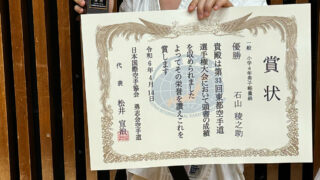 賞状
一般 小学4年男子軽量級
優勝 石山 稜之助
貴殿は第33回東都空手道
選手権大会において頭書の成績
を収められました
よってその栄誉を讃えこれを
賞します
令和6年4月14日
日本国際空手協会 勇志会空手道
代表 松井 宣治